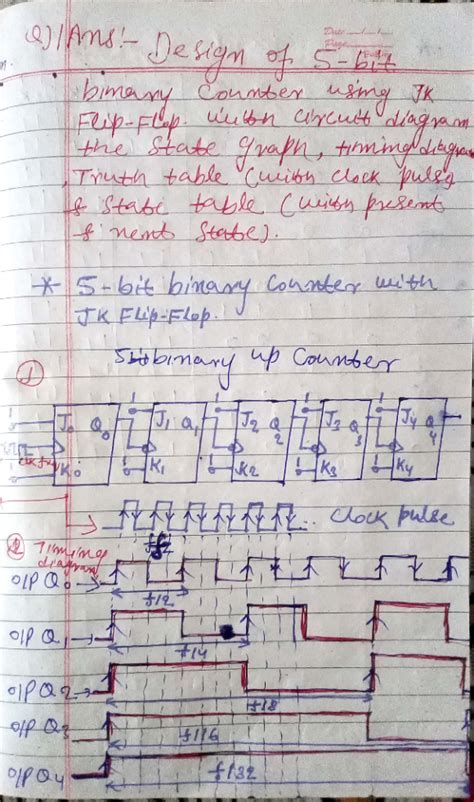 Date
Page
Q)1 Ans:- Design of 5-bit
binary Counter using JK
Flip-Flop. with circuit diagram
the State Graph, timing diagram
Truth table (with clock pulse
& State table (with present
& next State).
* 5-bit binary Counter with
JK Flip-Flop.
5 bit binary up Counter
1
J0 Q0 J1 Q1 J2 Q2 J3 Q3 J4 Q4
K0 K1 K2 K3 K4
Clock pulse
2 Timing
diagram
O/P Q0
f/2
O/P Q1
f/4
O/P Q2
f/8
O/P Q3
f/16
O/P Q4
f/32